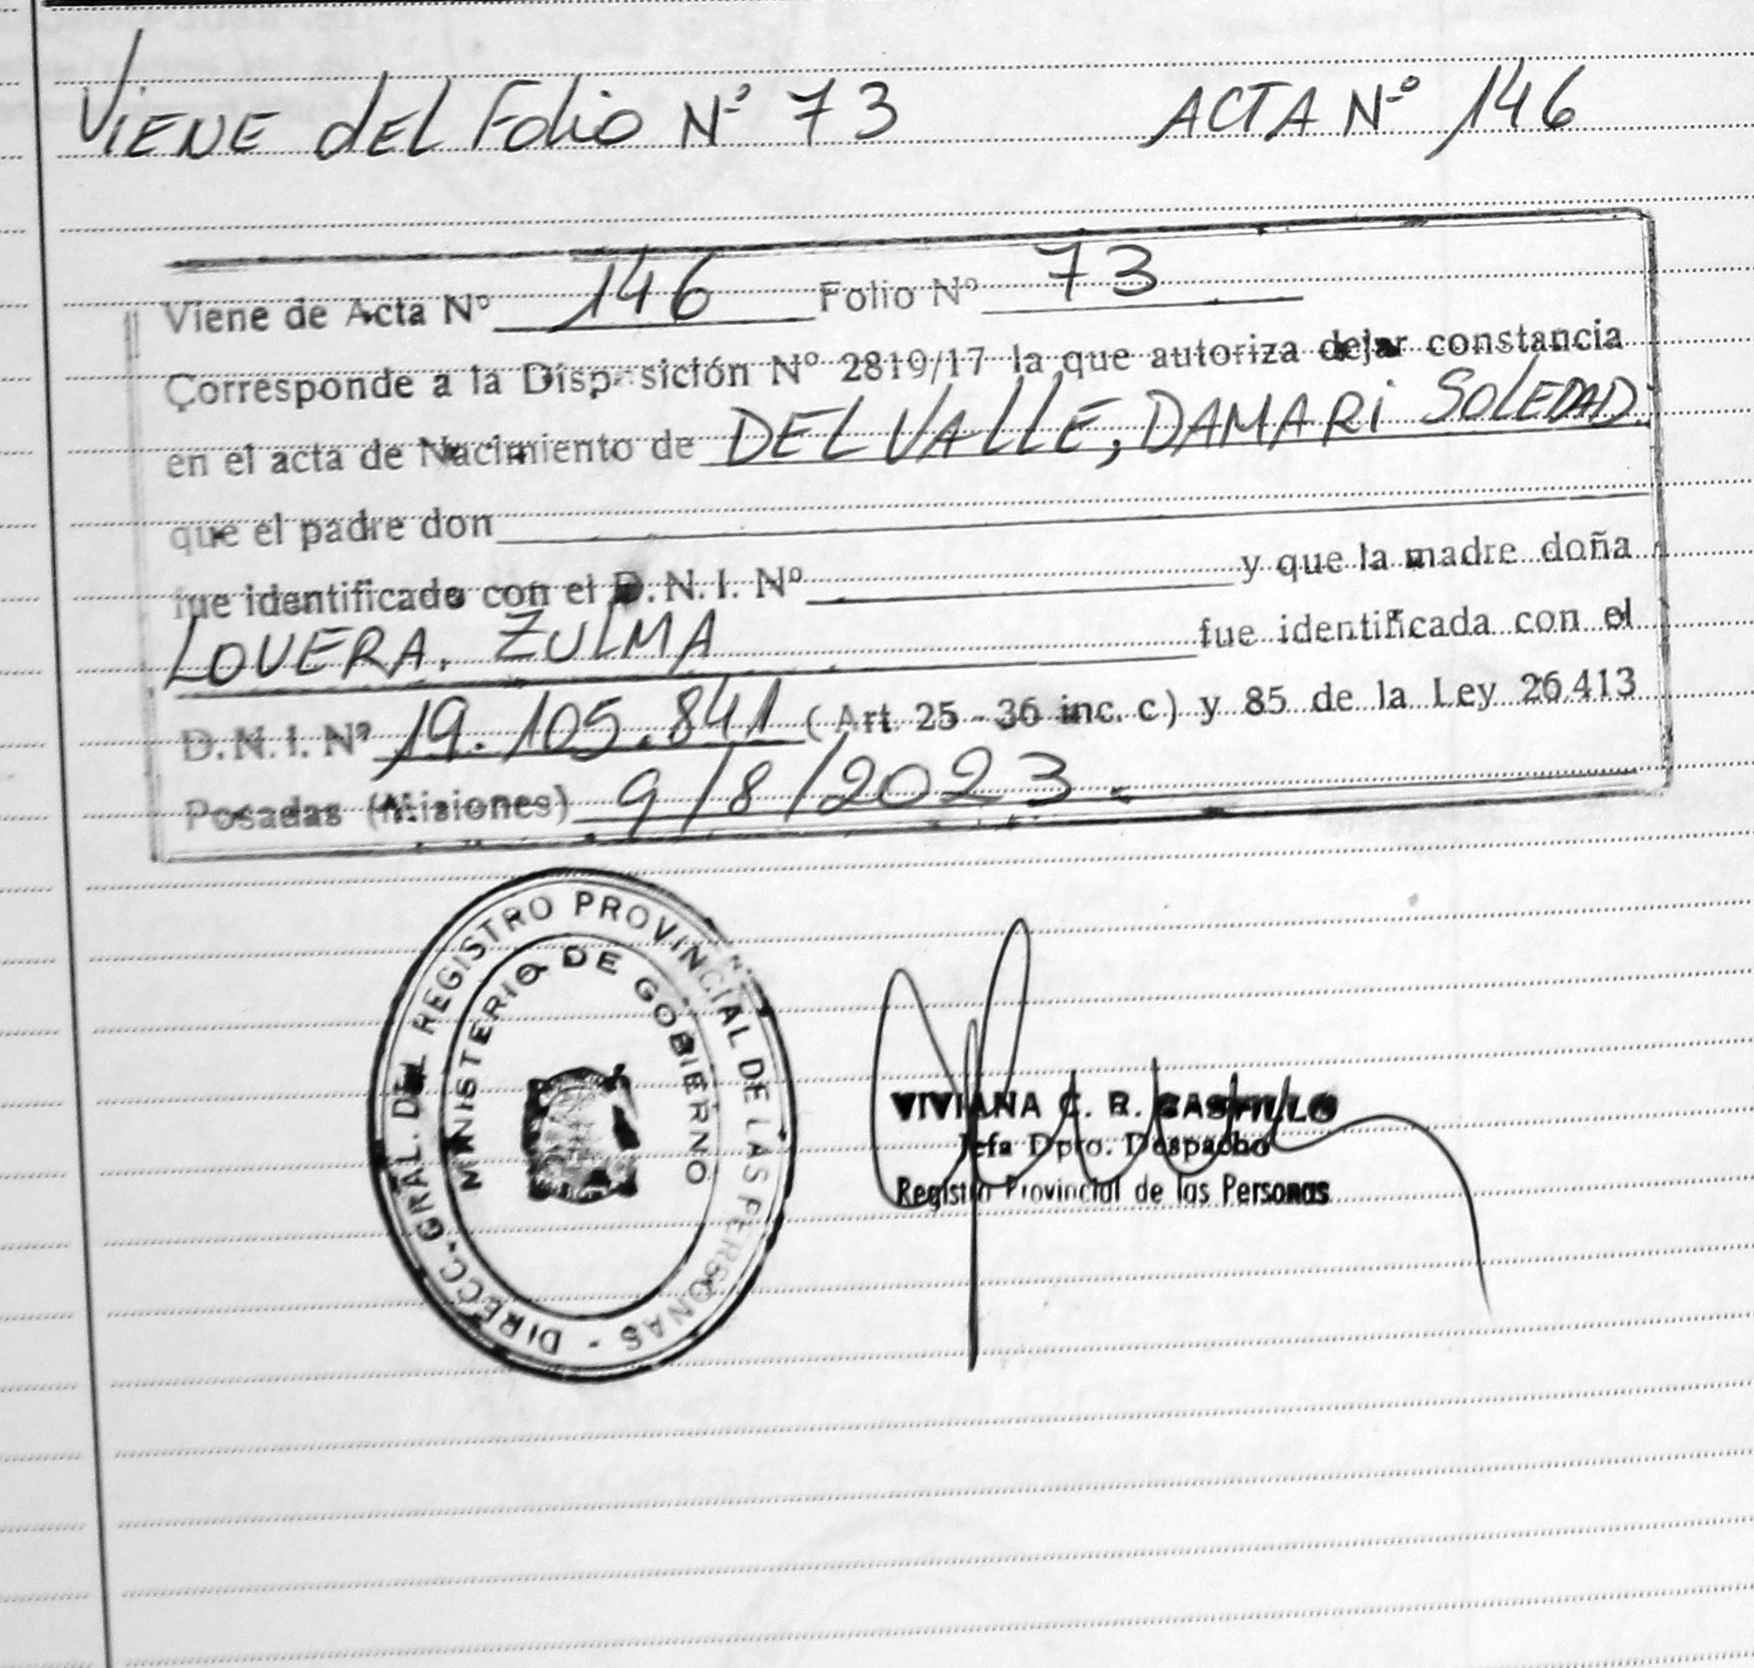 VIENE DEL FOLIO Nº 73 ACTA Nº 146
Viene de Acta Nº 146 Folio Nº 73
Corresponde a la Disposición Nº 2819/17 la que autoriza dejar constancia
en el acta de Nacimiento de DEL VALLE, DAMARI SOLEDAD.
que el padre don
fue identificado con el D.N.I. Nº y que la madre doña
LOVERA, ZULMA fue identificada con el
D.N.I. Nº 19.105.841 (Art. 25 - 36 inc. c) y 85 de la Ley 26.413
Posadas (Misiones) 9/8/2023.-
DIRECC. GRAL. DEL REGISTRO PROVINCIAL DE LAS PERSONAS -
MINISTERIO DE GOBIERNO
VIVIANA C. R. CASTILLO
Jefa Dpto. Despacho
Registro Provincial de las Personas